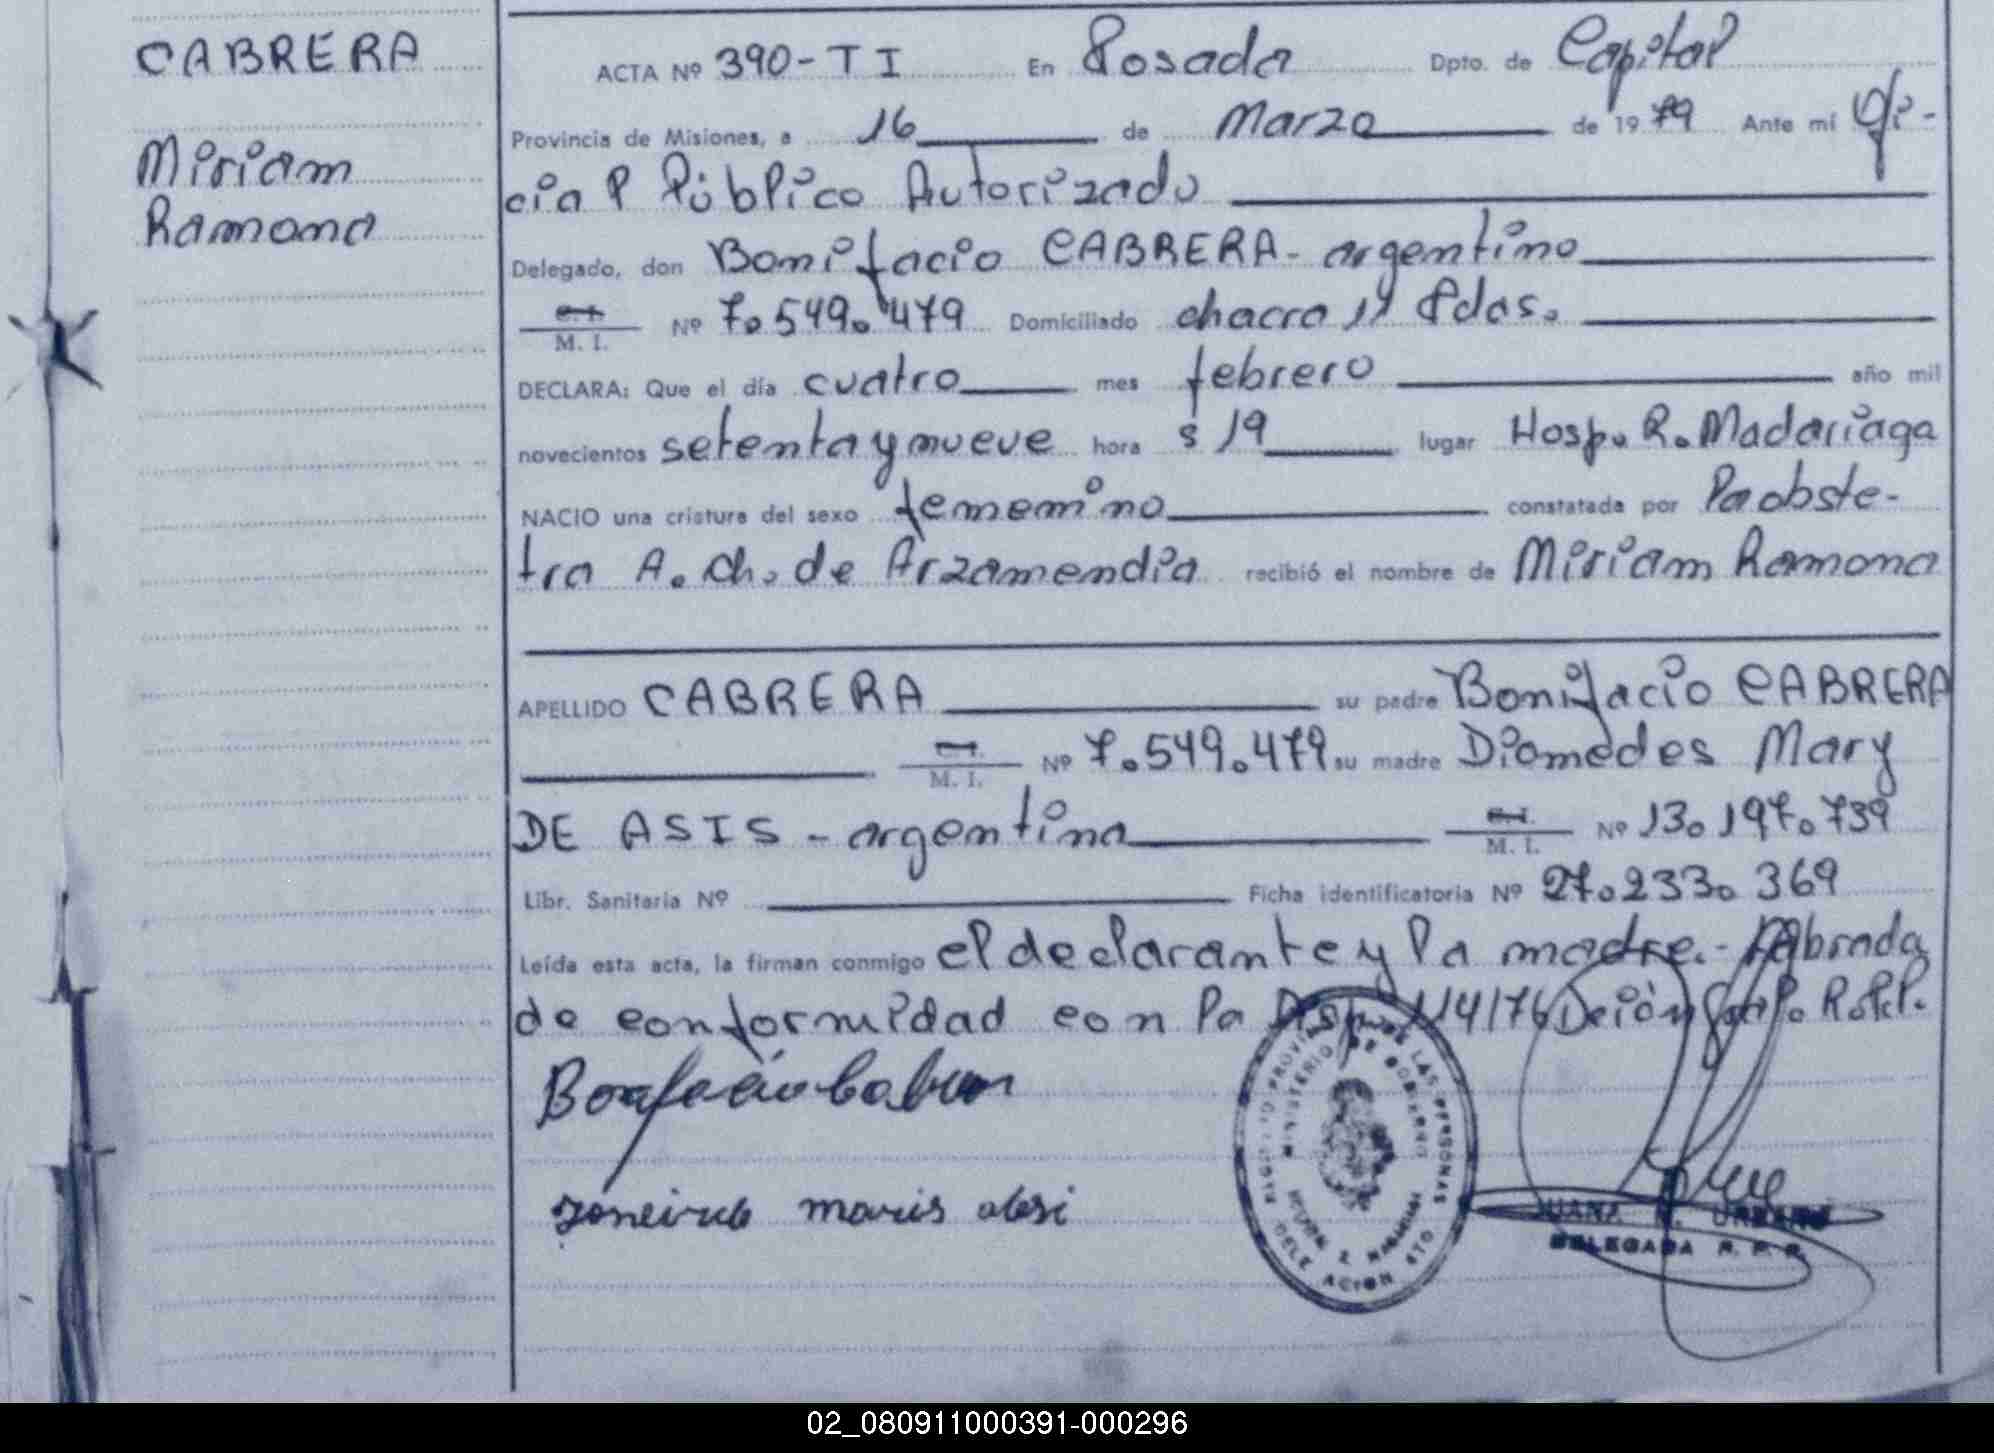 CABRERA
Miriam
Ramona
ACTA Nº 390-TI En Posada Dpto. de Capital
Provincia de Misiones, a 16 de Marzo de 1979 Ante mí Ofi-
cial Público Autorizado
Delegado, don Bonifacio CABRERA - argentino
C. I.
M. I. Nº 7.549.479 Domiciliado chacra 11 Pdas.
DECLARA: Que el día cuatro mes febrero año mil
novecientos setenta y nueve hora s 19 lugar Hosp. R. Madariaga
NACIO una criatura del sexo femenino constatada por Pa obste-
tra A. Ch. de Arzamendia recibió el nombre de Miriam Ramona
APELLIDO CABRERA su padre Bonifacio CABRERA
M. I. Nº 7.549.479 su madre Diomedes Mary
DE ASIS - argentina M. I. Nº 13.197.739
Libr. Sanitaria Nº Ficha identificatoria Nº 27.233.369
Leída esta acta, la firman conmigo el declarante y la madre.- Labrada
de conformidad con la Disp. 114/76 Dción Gral. R.P.P.
MINISTERIO DE GOBIERNO
REGISTRO PROVINCIAL DE LAS PERSONAS
DELEGACION 4TO
JUANA
DELEGADA R. P. P.
02_080911000391-000296